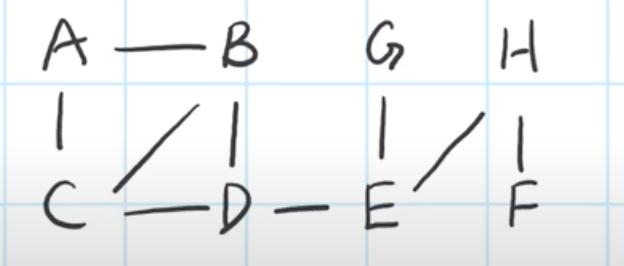 A B G H
C D E F